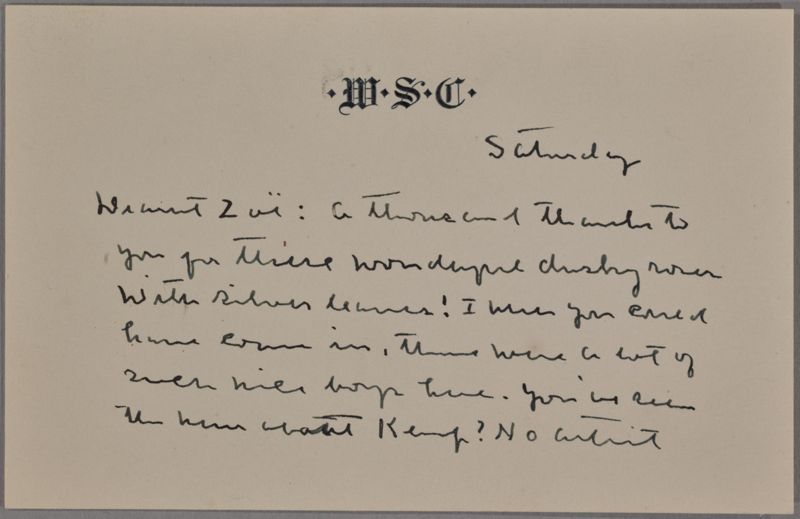 ·W·S·C·
Saturday
Dearest Zoë: A thousand thanks to
you for these wonderful dusky roses
with silver leaves! I wish you could
have come in, there were a lot of
such nice boys here. You've seen
the news about Kemp? No artist